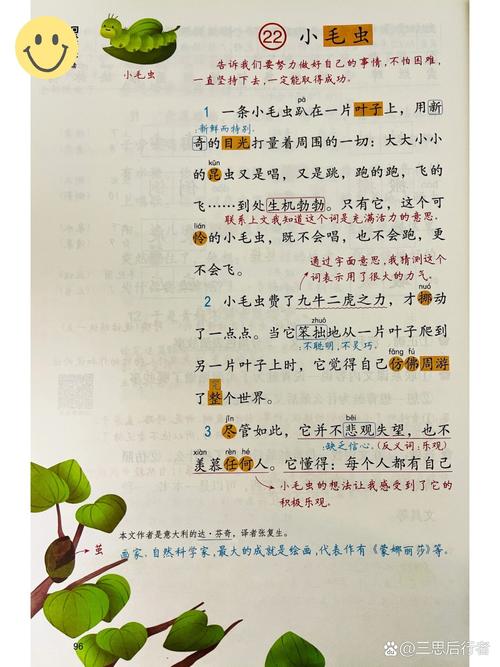 22 小毛虫
小毛虫
告诉我们要努力做好自己的事情,不怕困难,
一直坚持下去,一定能取得成功。
pā
1 一条小毛虫趴在一片叶子上,用新
新鲜而特别.
奇的目光打量着周围的一切:大大小小
kūn
的昆虫又是唱,又是跳,跑的跑,飞的
飞……到处生机勃勃。只有它,这个可
联系上文我知道这个词是充满活力的意思.
lián
怜的小毛虫,既不会唱,也不会跑,更
不会飞。
通过字面意思,我猜测这个
词表示用了很大的力气。
nuó
2 小毛虫费了九牛二虎之力,才挪动
了一点点。当它笨拙地从一片叶子爬到
不聪明,不灵巧.
另一片叶子上时,它觉得自己仿佛周游
fǎng fú
了整个世界。
jǐn bēi
3 尽管如此,它并不悲观失望,也不
缺乏信心。(反义词:乐观)
xiàn rèn
羡慕任何人。它懂得:每个人都有自己
小毛虫的想法让我感受到了它的
积极乐观。
茧
本文作者是意大利的达·芬奇,译者张复生。
画家、自然科学家,最大的成就是绘画,代表作有《蒙娜丽莎》等。
96
@三思后行者